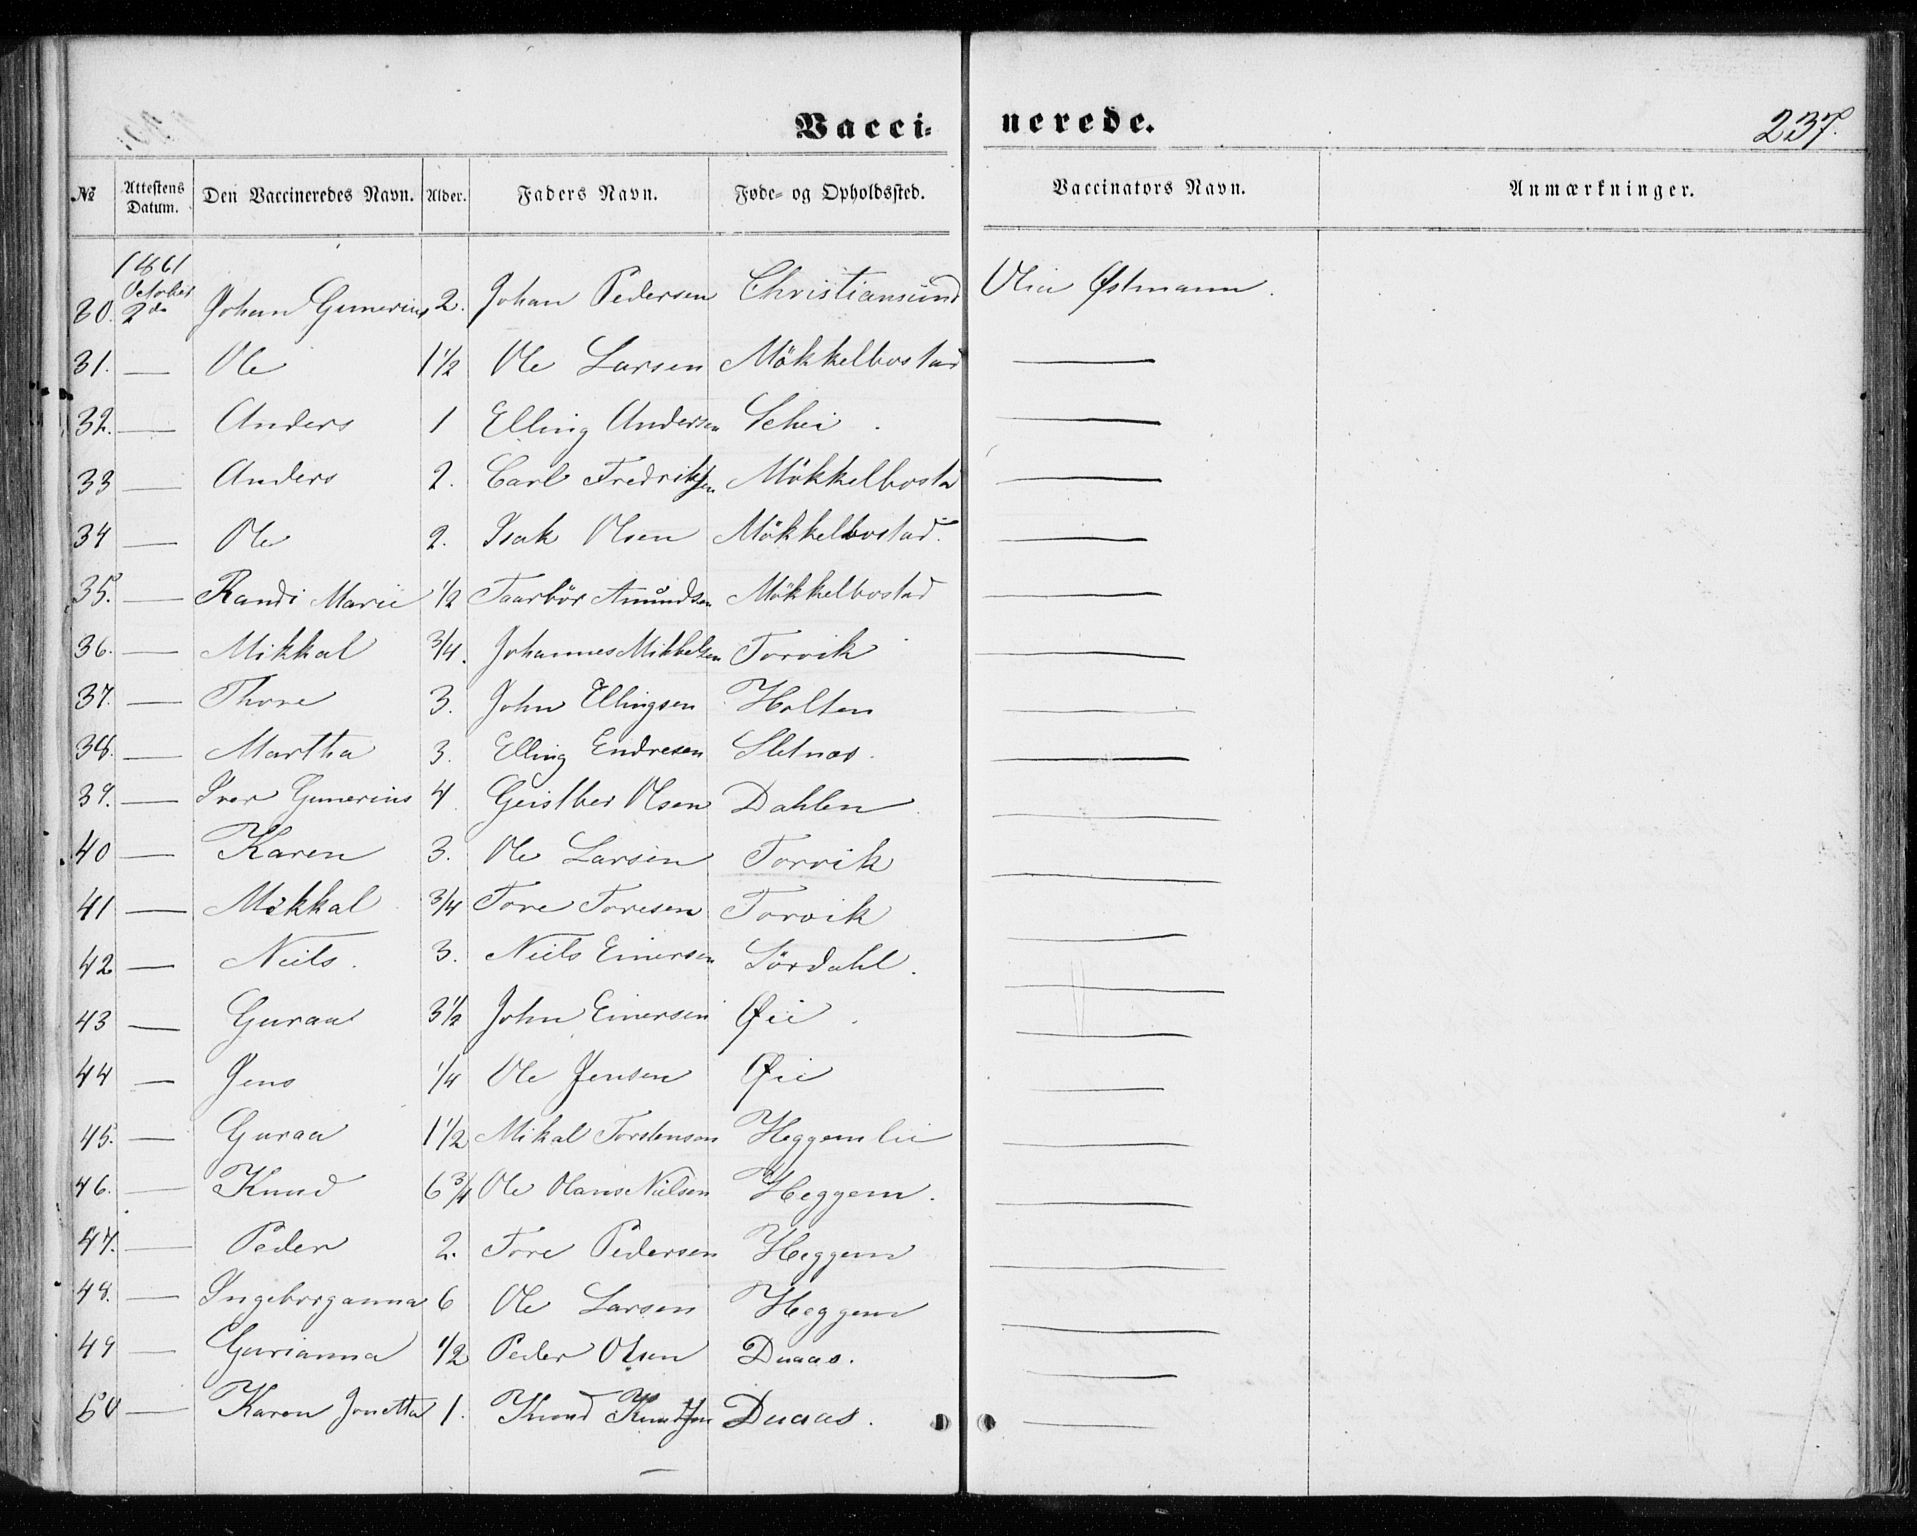 Vacci= nerede. 237.
№ Attestens Datum. Den Vaccineredes Navn. Alder. Faders Navn. Føde= og Opholdssted. Vaccinators Navn. Anmærkninger.
1861
October
30. 2de Johan Gunerius 2. Johan Pedersen Christiansund Østmann.
31. — Ole 1½ Ole Larsen Mökkelbostad —
32. — Anders 1 Elling Andersen Schei. —
33 — Anders 2. Carl Fredriksen Mökkelbosta —
34 — Ole 2. Isak Olsen Mökkelbostad. —
35. — Randi Marie ½ Taarbör Amundsen Mökkelbostad —
36. — Mikkal ¾. Johannes Mikkelsen Torvik —
37. — Thore 3. John Ellingsen Holten —
38. — Martha 3. Elling Endresen Sletnæs. —
39. — Iver Gunerius 4 Olsen Dahlen. —
40 — Karen 3. Ole Larsen Torvik —
41 — Mikkal ¾ Tore Toresen Torvik —
42 — Niels. 3. Niels Einersen Sördahl. —
43 — Guraa 3½ John Einersen Øie. —
44 — Jens ¼ Ole Jensen Øie —
45. — Guraa 1½ Mikal Torstensen Heggemlie —
46. — Knud 6¾ Ole Hans Nielsen Heggem. —
47. — Peder 2. Tore Pedersen Heggem —
48. — Ingeborganna 6 Ole Larsen Heggem —
49 — Gurianna ½ Peder Olsen Duaas. —
50 — Karen Jonetta 1. Knud Knudsen Duaas. —